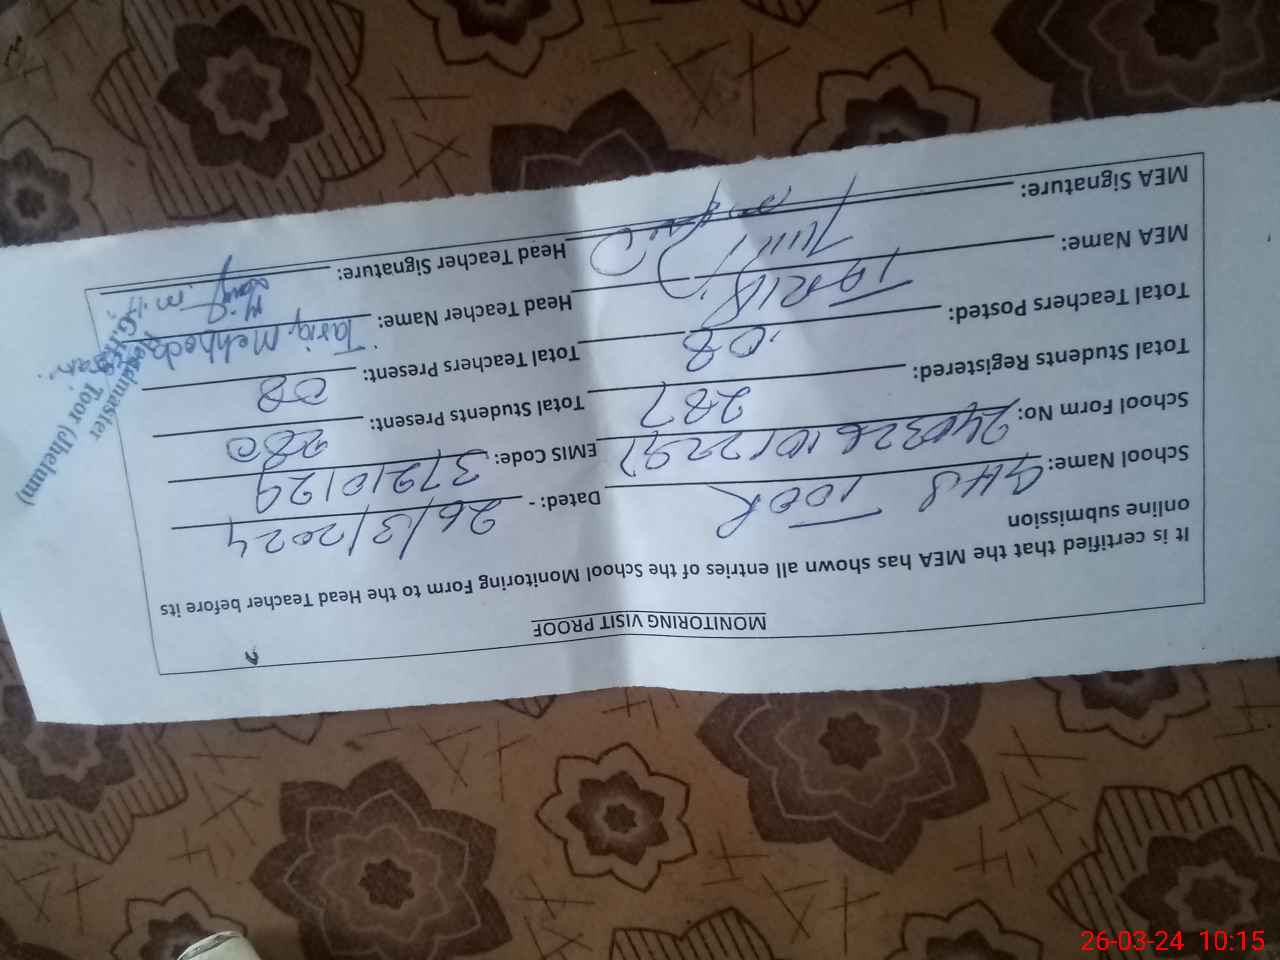 MONITORING VISIT PROOF
It is certified that the MEA has shown all entries of the School Monitoring Form to the Head Teacher before its
online submission
School Name: GHS TOOR Dated: - 26/3/2024
School Form No: EMIS Code: 37210129
Total Students Registered: 287 Total Students Present: 280
Total Teachers Posted: 08 Total Teachers Present: 08
MEA Name: TARIQ Head Teacher Name: Tariq Mehmood
MEA Signature: Head Teacher Signature:
Headmaster
Toor (Jhelum)
26-03-24 10:15